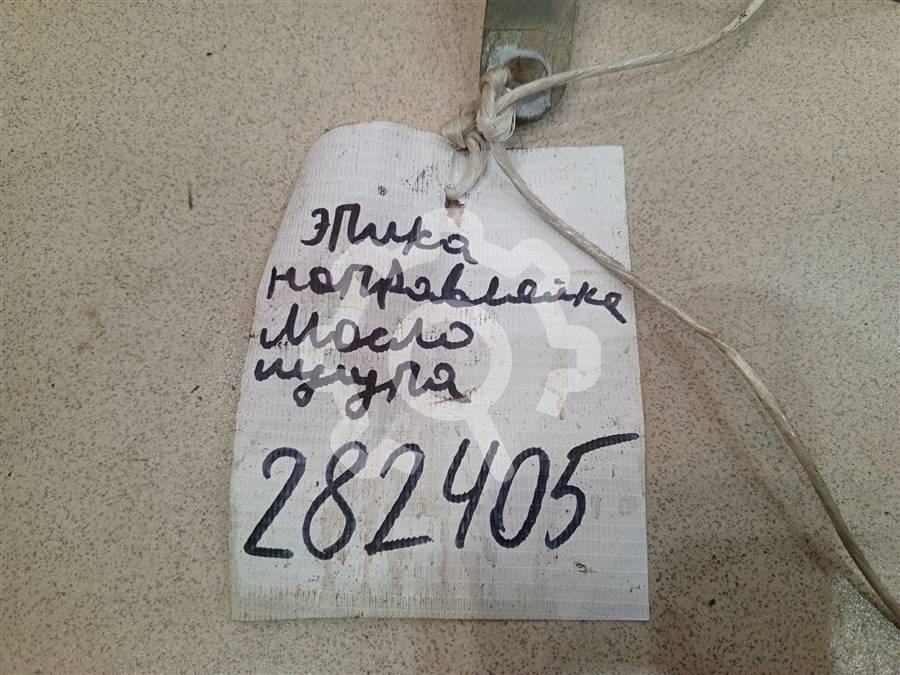 Эпика
направляйка
Масло
щупа
282405